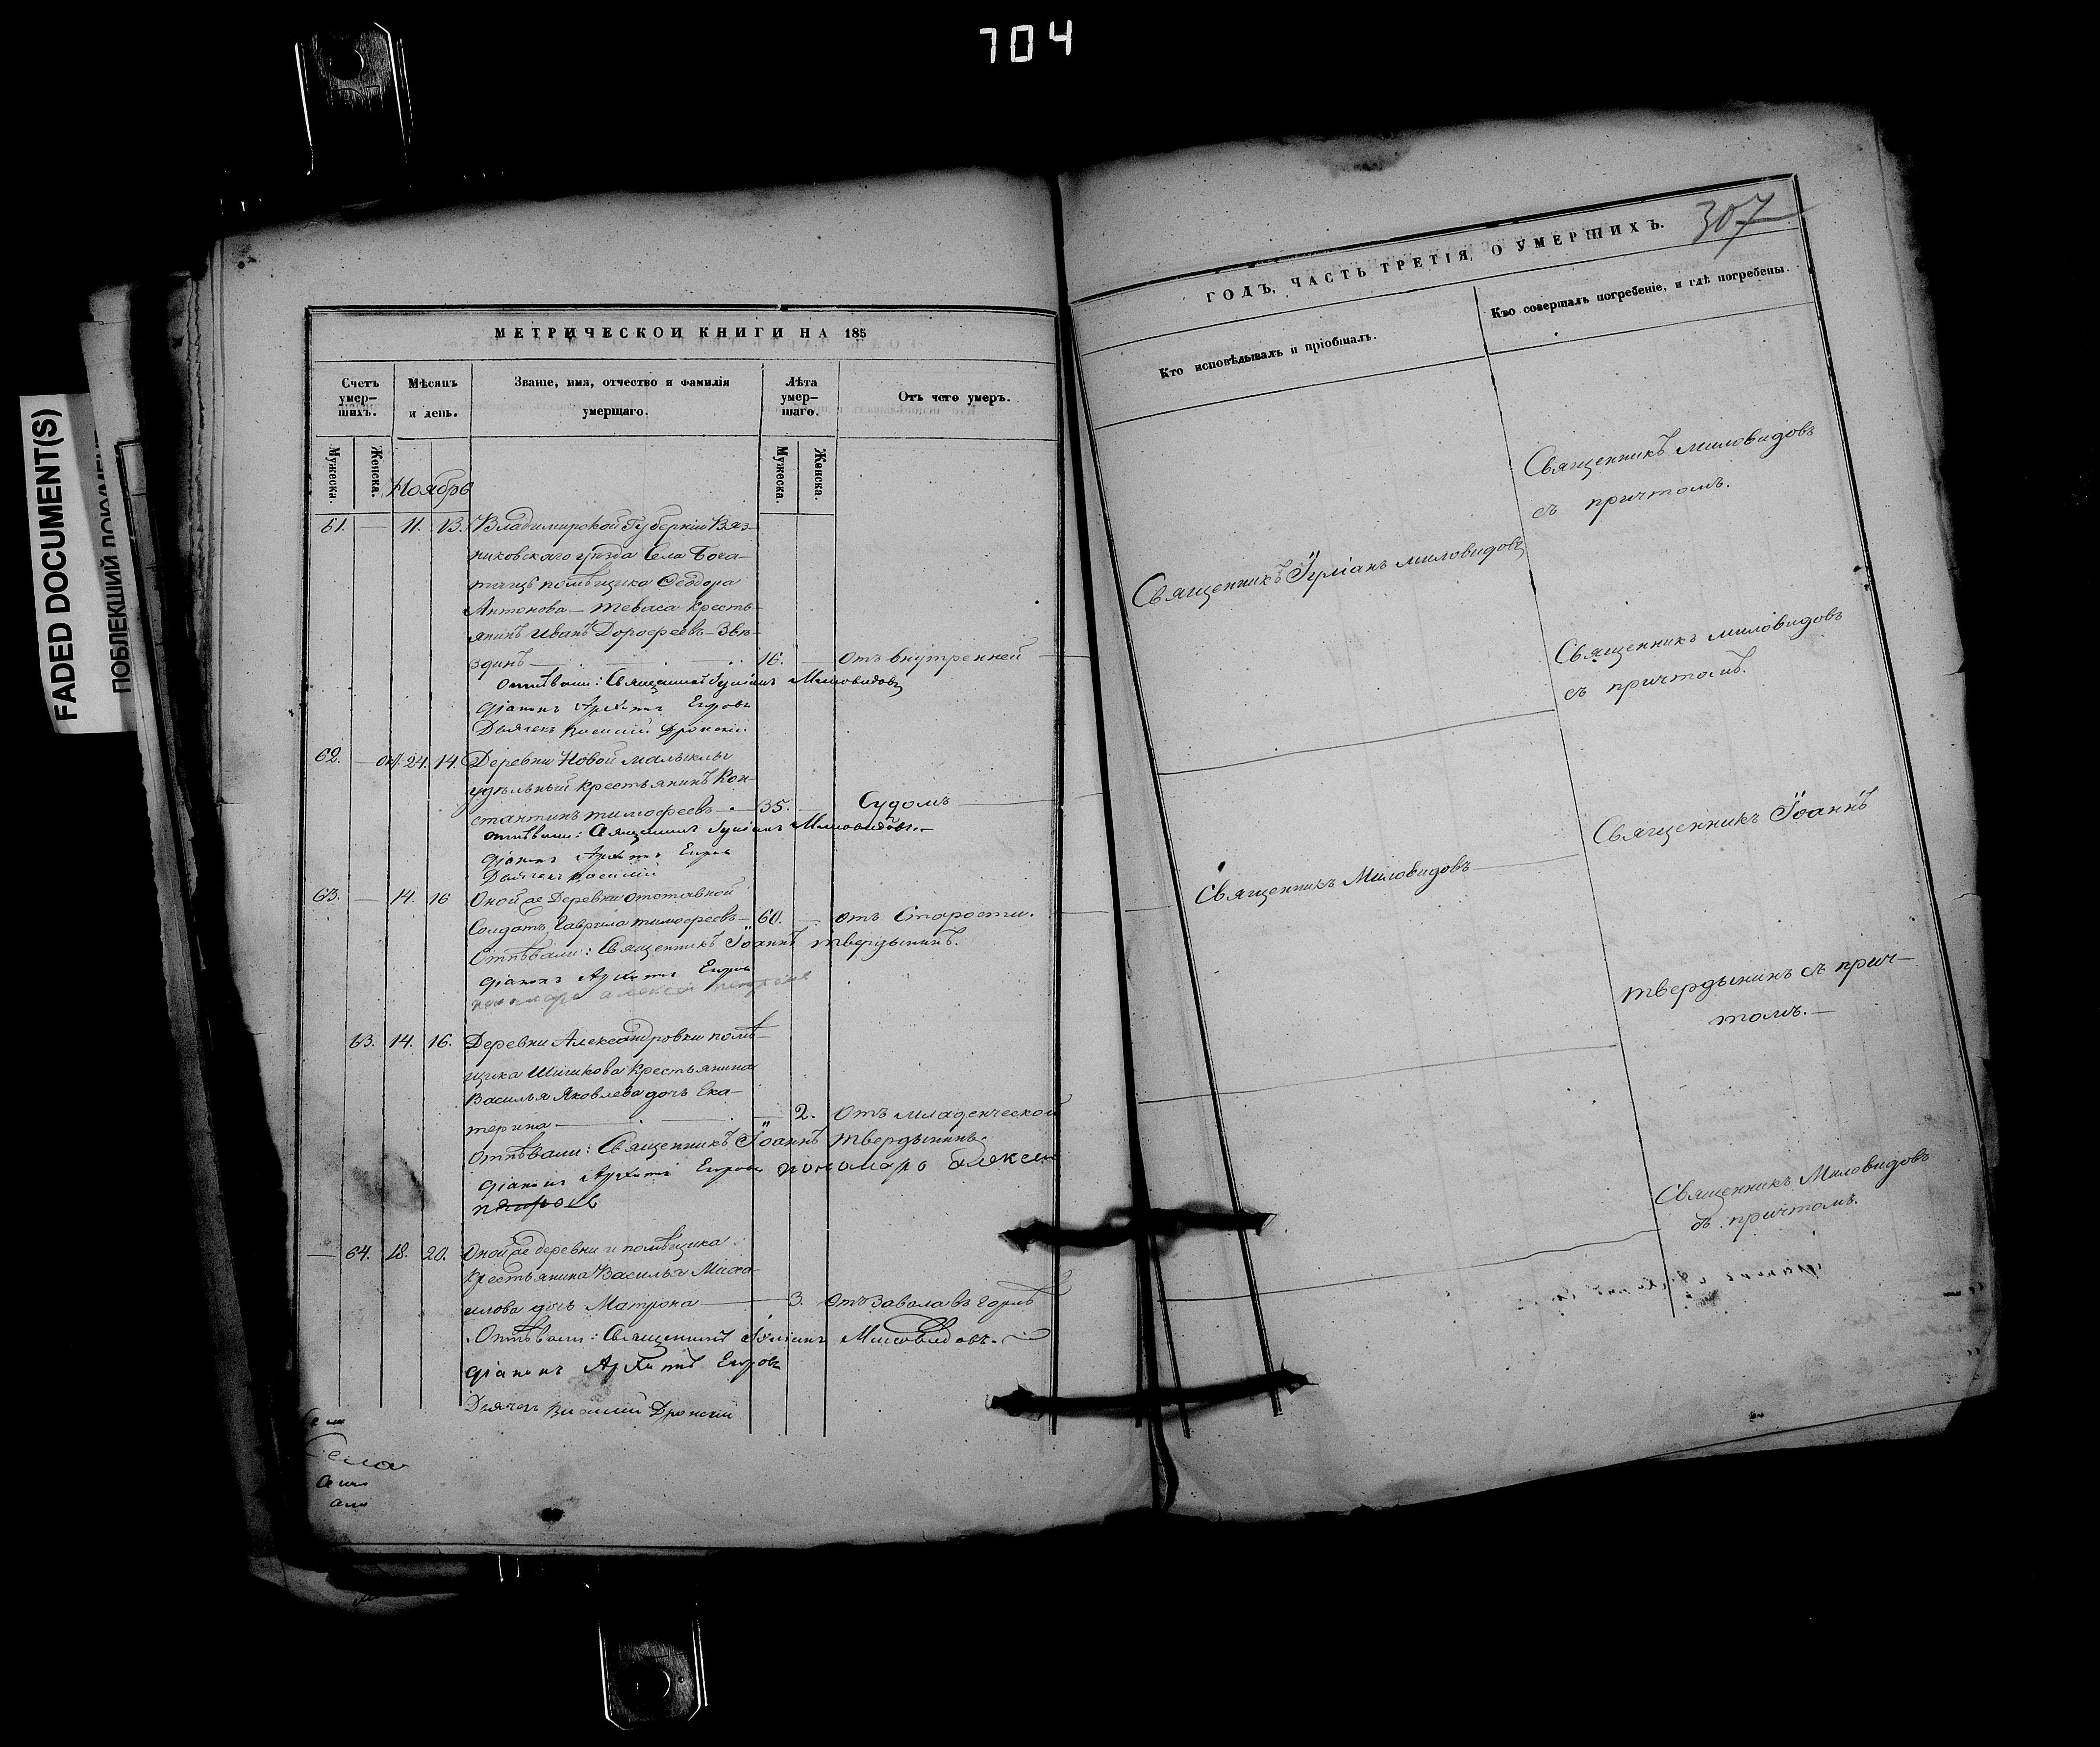 704
FADED DOCUMENT(S)
ПОБЛЕКШИЙ ДОКУМЕНТ
МЕТРИЧЕСКОЙ КНИГИ НА 185
Счетъ умер-шихъ.
Мѣсяцъ и день.
Званіе, имя, отчество и фамилія умершаго.
Лѣта умер-шаго.
Отъ чего умеръ.
Мужеска.
Женска.
Мужеска.
Женска.
Ноябрь
61. — 11. 13. Владимирской Губерніи Вяз-
никовскаго уѣзда Села
помѣщика Ѳеодора
Антонова кресть-
янинъ Иванъ Дороѳеевъ Звѣ-
здинъ — 16. — отъ внутренней
Отпѣвали: Священникъ Іуліанъ Миловидовъ
Діаконъ Архипъ Егоровъ
Дьячекъ Василій Дронскій
62. — окт. 24. 14. Деревни Новой Малыклы
удѣльный крестьянинъ Кон-
стантинъ Тимоѳеевъ — 35. — Судомъ
Отпѣвали: Священникъ Іуліанъ Миловидовъ.
Діаконъ Архипъ Егоровъ
Дьячекъ Василій
63. — 14. 16 Оной же Деревни отставной
Солдатъ Гаврила Тимоѳеевъ — 60. — отъ Старости.
Отпѣвали: Священникъ Іоаннъ Твердынинъ.
Діаконъ Архипъ Егоровъ
пономарь алексей петровъ
63. 14. 16. Деревни Александровки помѣ-
щика Шишкова крестьянина
Василья Яковлева дочь Ека-
терина — 2. Отъ младенческой
Отпѣвали: Священникъ Іоаннъ Твердынинъ.
Діаконъ Архипъ Егоровъ пономарь алексей
петровъ
— 64. 18. 20. Оной же деревни и помѣщика
крестьянина Василья Миха-
илова дочь Матрона — 3. Отъ завала въ горлѣ
Отпѣвали: Священникъ Іуліанъ Миловидовъ.
Діаконъ Архипъ Егоровъ
Дьячекъ Василій Дронскій
307
ГОДЪ, ЧАСТЬ ТРЕТІЯ, О УМЕРШИХЪ.
Кто исповѣдывалъ и пріобщалъ.
Кто совершалъ погребеніе, и гдѣ погребены.
Священникъ Миловидовъ
съ причтомъ.
Священникъ Іуліанъ Миловидовъ
Священникъ Миловидовъ
съ причтомъ.
Священникъ Іоаннъ
Священникъ Миловидовъ
Твердынинъ съ прич-
томъ.
Священникъ Миловидовъ
съ причтомъ.